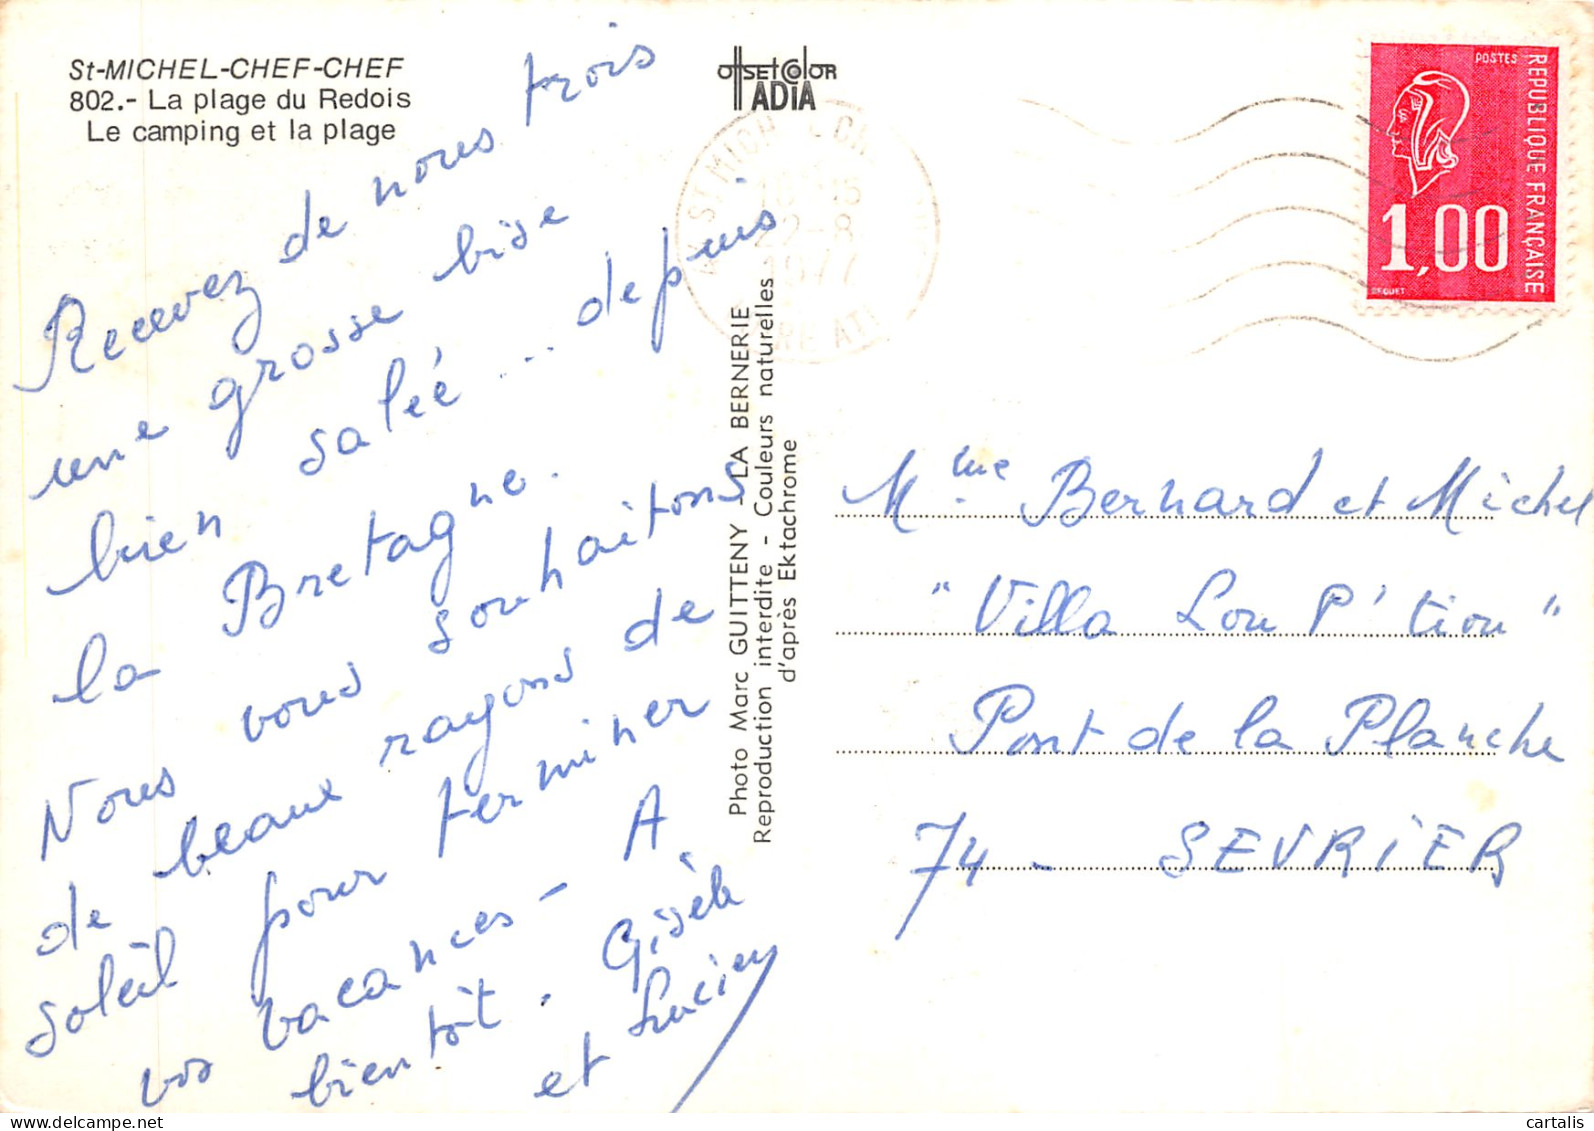 St-MICHEL-CHEF-CHEF
802.- La plage du Redois
Le camping et la plage
Recevez de nous trois
une grosse bise
bien salée ... depuis
la Bretagne.
Nous vous souhaitons
de beaux rayons de
soleil pour terminer
vos vacances - A
bientôt. Gisèle
et Lucien
OffSET COlOR
ADiA
Photo Marc GUITTENY - LA BERNERIE
Reproduction interdite - Couleurs naturelles
d'après Ektachrome
22-8
1977
POSTES
REPUBLIQUE FRANÇAISE
1,00
BEQUET
Mme Bernard et Michel
"Villa Lou P'tiou"
Pont de la Planche
74 - SEVRIER
cartalis